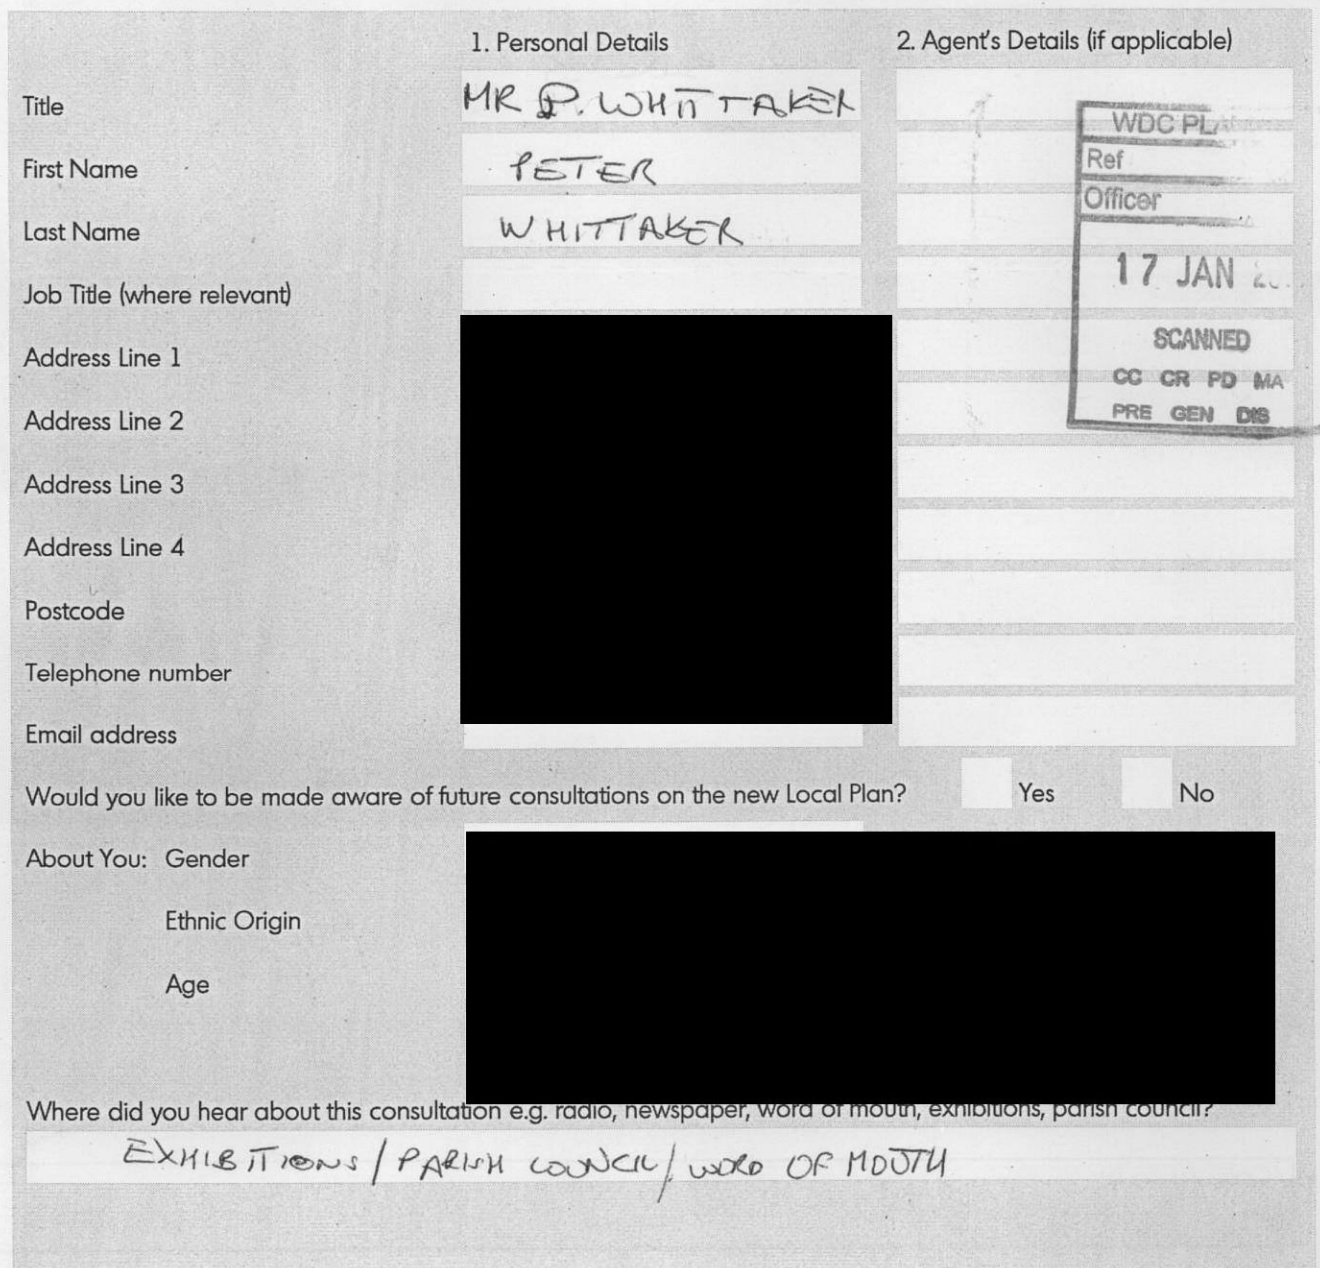 1. Personal Details
2. Agent's Details (if applicable)
Title
MR P. WHITTAKER
First Name
PETER
Last Name
WHITTAKER
Job Title (where relevant)
Address Line 1
Address Line 2
Address Line 3
Address Line 4
Postcode
Telephone number
Email address
WDC
Ref
Officer
17 JAN
SCANNED
CC CR PD MA
PRE GEN DIS
Would you like to be made aware of future consultations on the new Local Plan? Yes No
About You: Gender
Ethnic Origin
Age
Where did you hear about this consultation e.g. radio, newspaper, word of mouth, exhibitions, parish council?
EXHIBITIONS / PARISH COUNCIL / WORD OF MOUTH